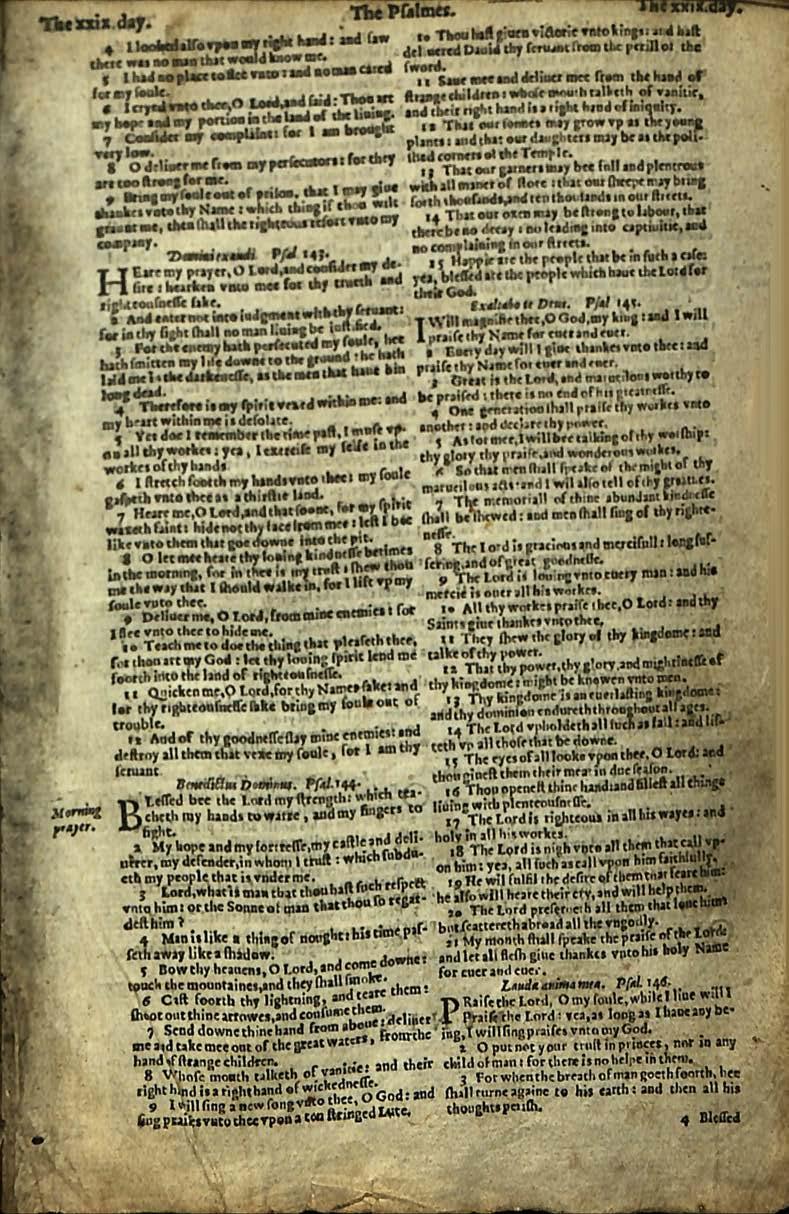 The xxix. day.
The Psalmes.
The xxix. day.
4 I looked also vpon my right hand: and saw
there was no man that would know me.
5 I had no place to flee vnto: and no man cared
for my soule.
6 I cryed vnto thee, O Lord, and said: Thou art
my hope and my portion in the land of the liuing.
7 Consider my complaint: for I am brought
very low.
8 O deliuer me from my persecutors: for they
are too strong for me.
9 Bring my soule out of prison, that I may giue
thankes vnto thy Name: which thing if thou wilt
graunt me, then shall the righteous resort vnto my
company.
Domine exaudi Psal 143.
HEare my prayer, O Lord, and consider my de-
sire: hearken vnto mee for thy trueth and
righteousnesse sake.
2 And enter not into iudgment with thy seruant:
for in thy sight shall no man liuing be iustified.
3 For the enemy hath persecuted my soule, hee
hath smitten my life downe to the ground: he hath
laid me in the darkenesse, as the men that haue bin
long dead.
4 Therefore is my spirit vexed within me: and
my heart within me is desolate.
5 Yet doe I remember the time past, I muse vp-
on all thy workes: yea, I exercise my selfe in the
workes of thy hands
6 I stretch foorth my hands vnto thee: my soule
gaspeth vnto thee as a thirstie land.
7 Heare me, O Lord, and that soone, for my spirit
waxeth faint: hide not thy face from mee: lest I bee
like vnto them that goe downe into the pit.
8 O let mee heare thy louing kindnesse betimes
in the morning, for in thee is my trust: shew thou
me the way that I should walke in, for I lift vp my
soule vnto thee.
9 Deliuer me, O Lord, from mine enemies: for
I flee vnto thee to hide me.
10 Teach me to doe the thing that pleaseth thee,
for thou art my God: let thy louing spirit lead me
foorth into the land of righteousnesse.
11 Quicken me, O Lord, for thy Names sake: and
for thy righteousnesse sake bring my soule out of
trouble.
12 And of thy goodnesse slay mine enemies: and
destroy all them that vexe my soule, for I am thy
seruant.
Benedictus Dominus. Psal. 144.
Morning
prayer.
BLessed bee the Lord my strength: which tea-
cheth my hands to warre, and my fingers to
fight.
2 My hope and my fortresse, my castle and deli-
uerer, my defender, in whom I trust: which subdu-
eth my people that is vnder me.
3 Lord, what is man that thou hast such respect
vnto him: or the Sonne of man that thou so regar-
dest him?
4 Man is like a thing of nought: his time pas-
seth away like a shadow.
5 Bow thy heauens, O Lord, and come downe:
touch the mountaines, and they shall smoke.
6 Cast foorth thy lightning, and teare them:
shoot out thine arrowes, and consume them.
7 Send downe thine hand from aboue: deliuer
me and take mee out of the great waters, from the
hand of strange children.
8 Whose mouth talketh of vanitie: and their
right hand is a right hand of wickednesse.
9 I will sing a new song vnto thee, O God: and
sing praises vnto thee vpon a ten stringed Lute.
10 Thou hast giuen victorie vnto kings: and hast
deliuered Dauid thy seruant from the perill of the
sword.
11 Saue mee and deliuer mee from the hand of
strange children: whose mouth talketh of vanitie,
and their right hand is a right hand of iniquity.
12 That our sonnes may grow vp as the young
plants: and that our daughters may be as the poli-
shed corners of the Temple.
13 That our garners may bee full and plenteous
with all maner of store: that our sheepe may bring
forth thousands, and ten thousands in our streets.
14 That our oxen may be strong to labour, that
there be no decay: no leading into captiuitie, and
no complaining in our streets.
15 Happie are the people that be in such a case:
yea, blessed are the people which haue the Lord for
their God.
Exaltabo te Deus. Psal 145.
I Will magnifie thee, O God, my king: and I will
praise thy Name for euer and euer.
2 Euery day will I giue thankes vnto thee: and
praise thy Name for euer and euer.
3 Great is the Lord, and maruellous worthy to
be praised: there is no end of his greatnesse.
4 One generation shall praise thy workes vnto
another: and declare thy power.
5 As for mee, I will bee talking of thy worship:
thy glory thy praise, and wonderous workes.
6 So that men shall speake of the might of thy
marueilous acts: and I wil also tell of thy greatnes.
7 The memoriall of thine abundant kindnesse
shall be shewed: and men shall sing of thy righte-
nesse.
8 The Lord is gracious and mercifull: long suf-
fering, and of great goodnesse.
9 The Lord is louing vnto euery man: and his
mercie is ouer all his workes.
10 All thy workes praise thee, O Lord: and thy
Saints giue thankes vnto thee.
11 They shew the glory of thy kingdome: and
talke of thy power.
12 That thy power, thy glory, and mightinesse of
thy kingdome: might be knowen vnto men.
13 Thy kingdome is an euerlasting kingdome:
and thy dominion endureth throughout all ages.
14 The Lord vpholdeth all such as fall: and lif-
teth vp all those that be downe.
15 The eyes of all looke vpon thee, O Lord: and
thou giuest them their meat in due season.
16 Thou openest thine hand: and fillest all things
liuing with plenteousnesse.
17 The Lord is righteous in all his wayes: and
holy in all his workes.
18 The Lord is nigh vnto all them that call vp-
on him: yea, all such as call vpon him faithfully.
19 He wil fulfil the desire of them that feare him:
he also will heare their cry, and will help them.
20 The Lord preserueth all them that loue him:
but scattereth abroad all the vngodly.
21 My mouth shall speake the praise of the Lord:
and let all flesh giue thankes vnto his holy Name
for euer and euer.
Lauda anima mea. Psal. 146.
PRaise the Lord, O my soule, while I liue will I
Praise the Lord: yea, as long as I haue any be-
ing, I will sing praises vnto my God.
2 O put not your trust in princes, nor in any
child of man: for there is no helpe in them.
3 For when the breath of man goeth foorth, hee
shall turne againe to his earth: and then all his
thoughts perish.
4 Blessed